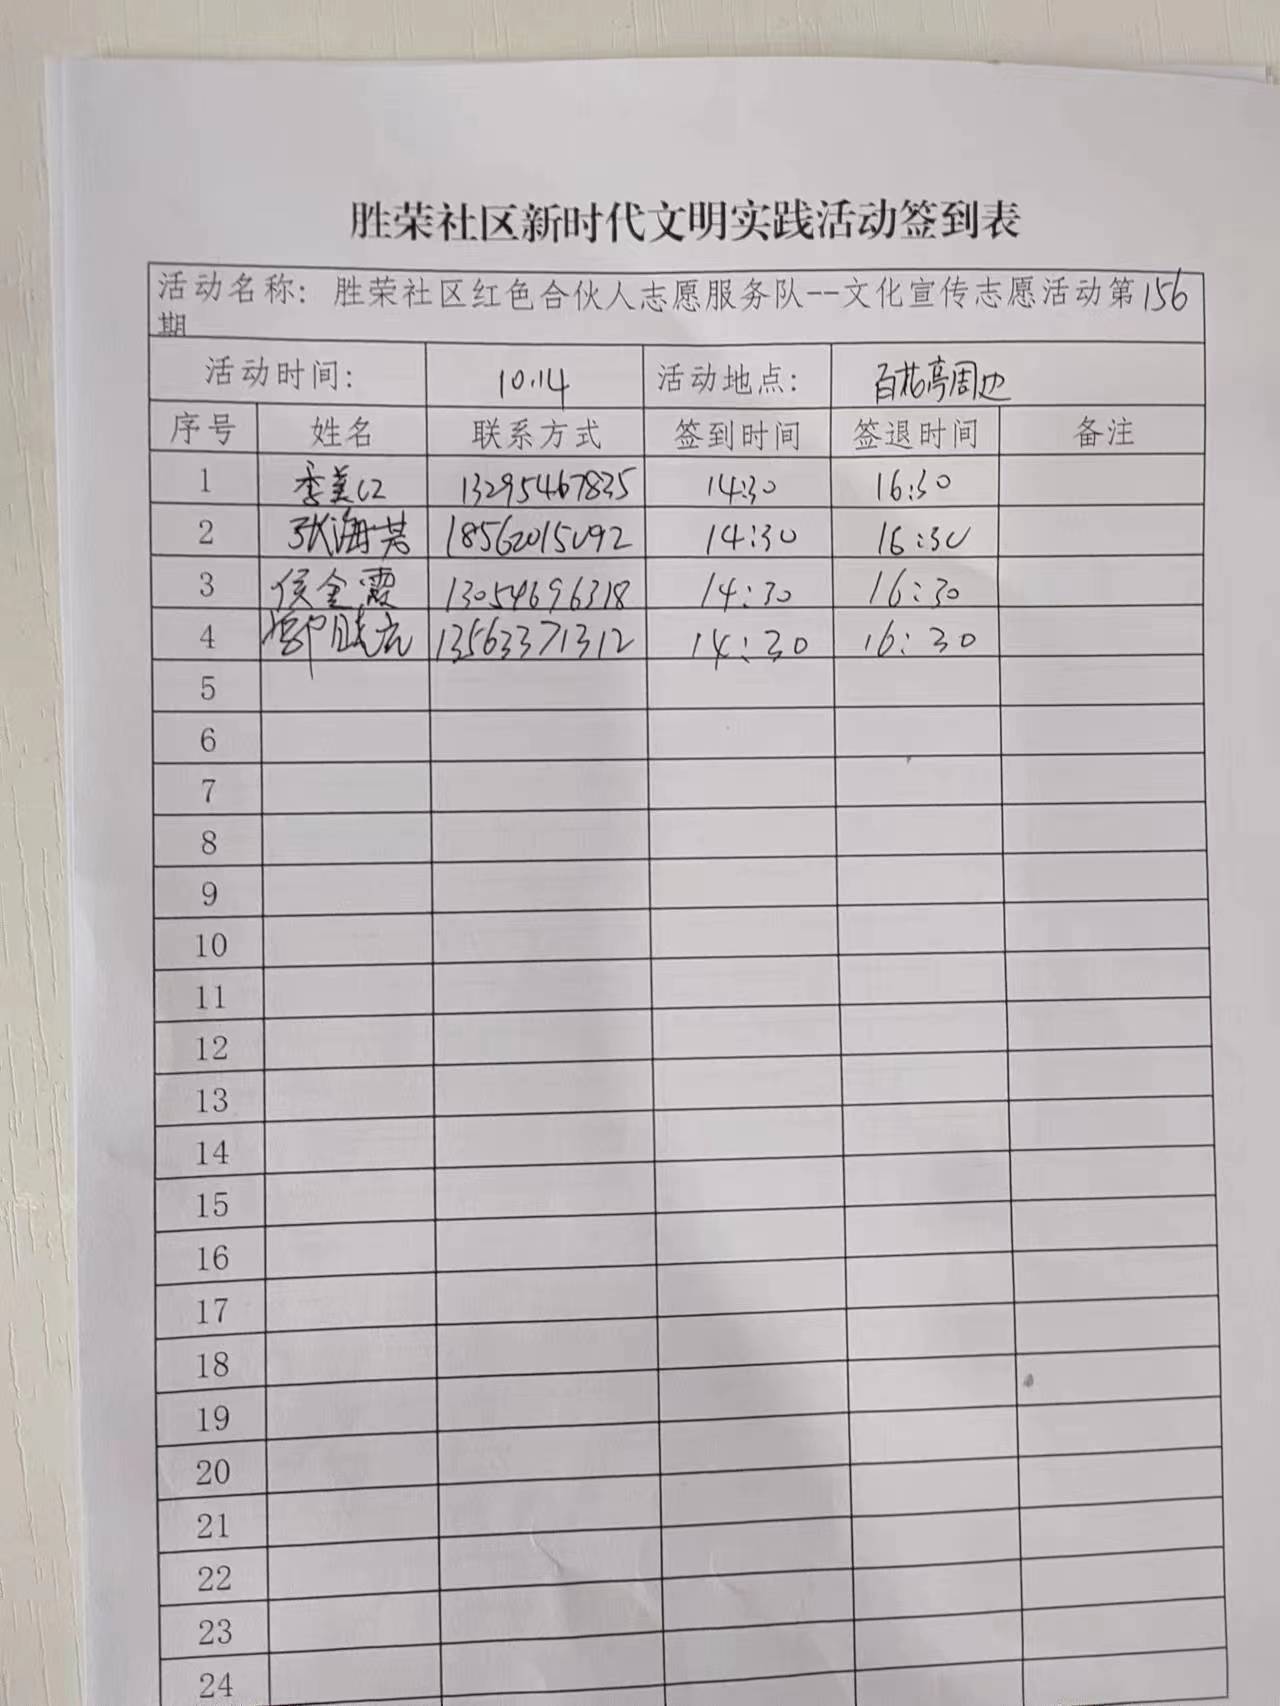 胜荣社区新时代文明实践活动签到表
活动名称：胜荣社区红色合伙人志愿服务队--文化宣传志愿活动第156
期
活动时间： 10.14 活动地点： 百花亭周边
序号 姓名 联系方式 签到时间 签退时间 备注
1 季美江 13295467835 14:30 16:30
2 张海芳 18562015092 14:30 16:30
3 侯金霞 13054696318 14:30 16:30
4 13563371312 14:30 16:30
5
6
7
8
9
10
11
12
13
14
15
16
17
18
19
20
21
22
23
24